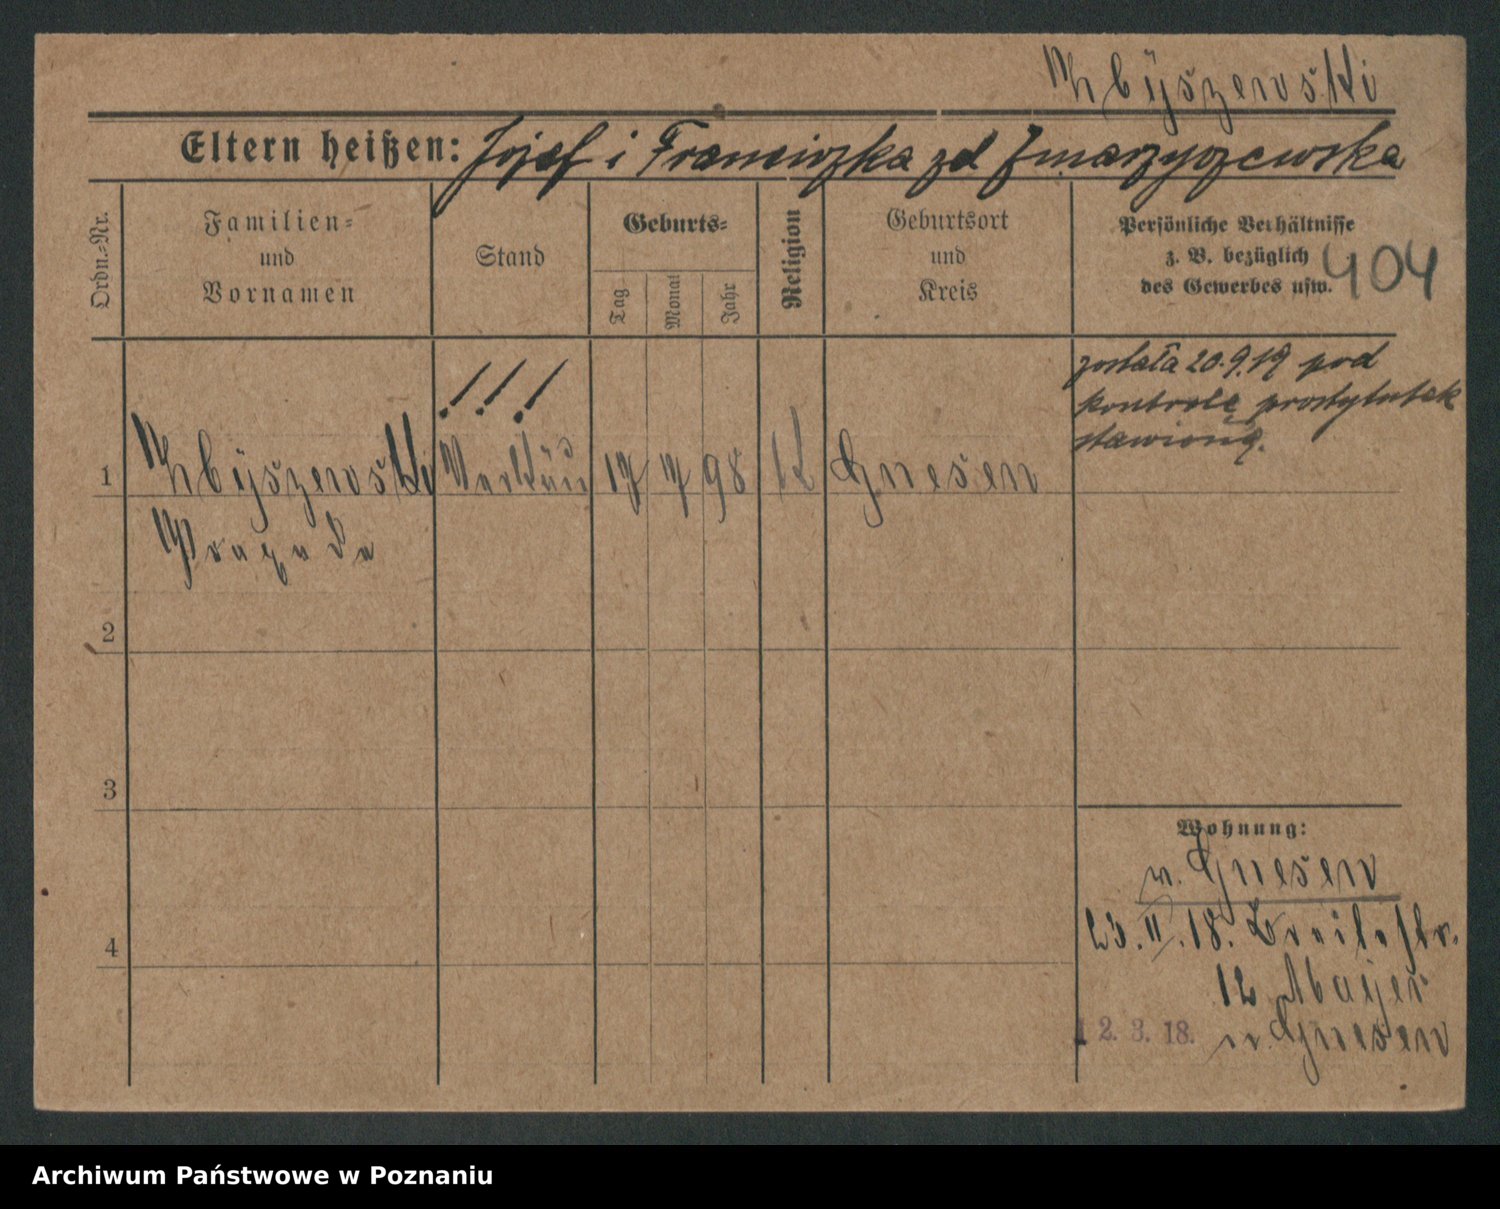 Zbÿszewski
Eltern heißen: Józef i Franciszka zd Zmarzyczewska
Ordn.=Nr.
Familien=
und
Vornamen
Stand
Geburts=
Tag
Monat
Jahr
Religion
Geburtsort
und
Kreis
Persönliche Verhältnisse
z. B. bezüglich
des Gewerbes usw.
404
została 20.9.19 pod
kontrolę prostytutek
stawioną.
!!!
1 Zbÿszewski 17 7 98 K Gnesen
2
3
Wohnung:
n. Gnesen
23. II. 18. Breitestr.
4
12 Mayer
12. 3. 18. n. Gnesen
Archiwum Państwowe w Poznaniu